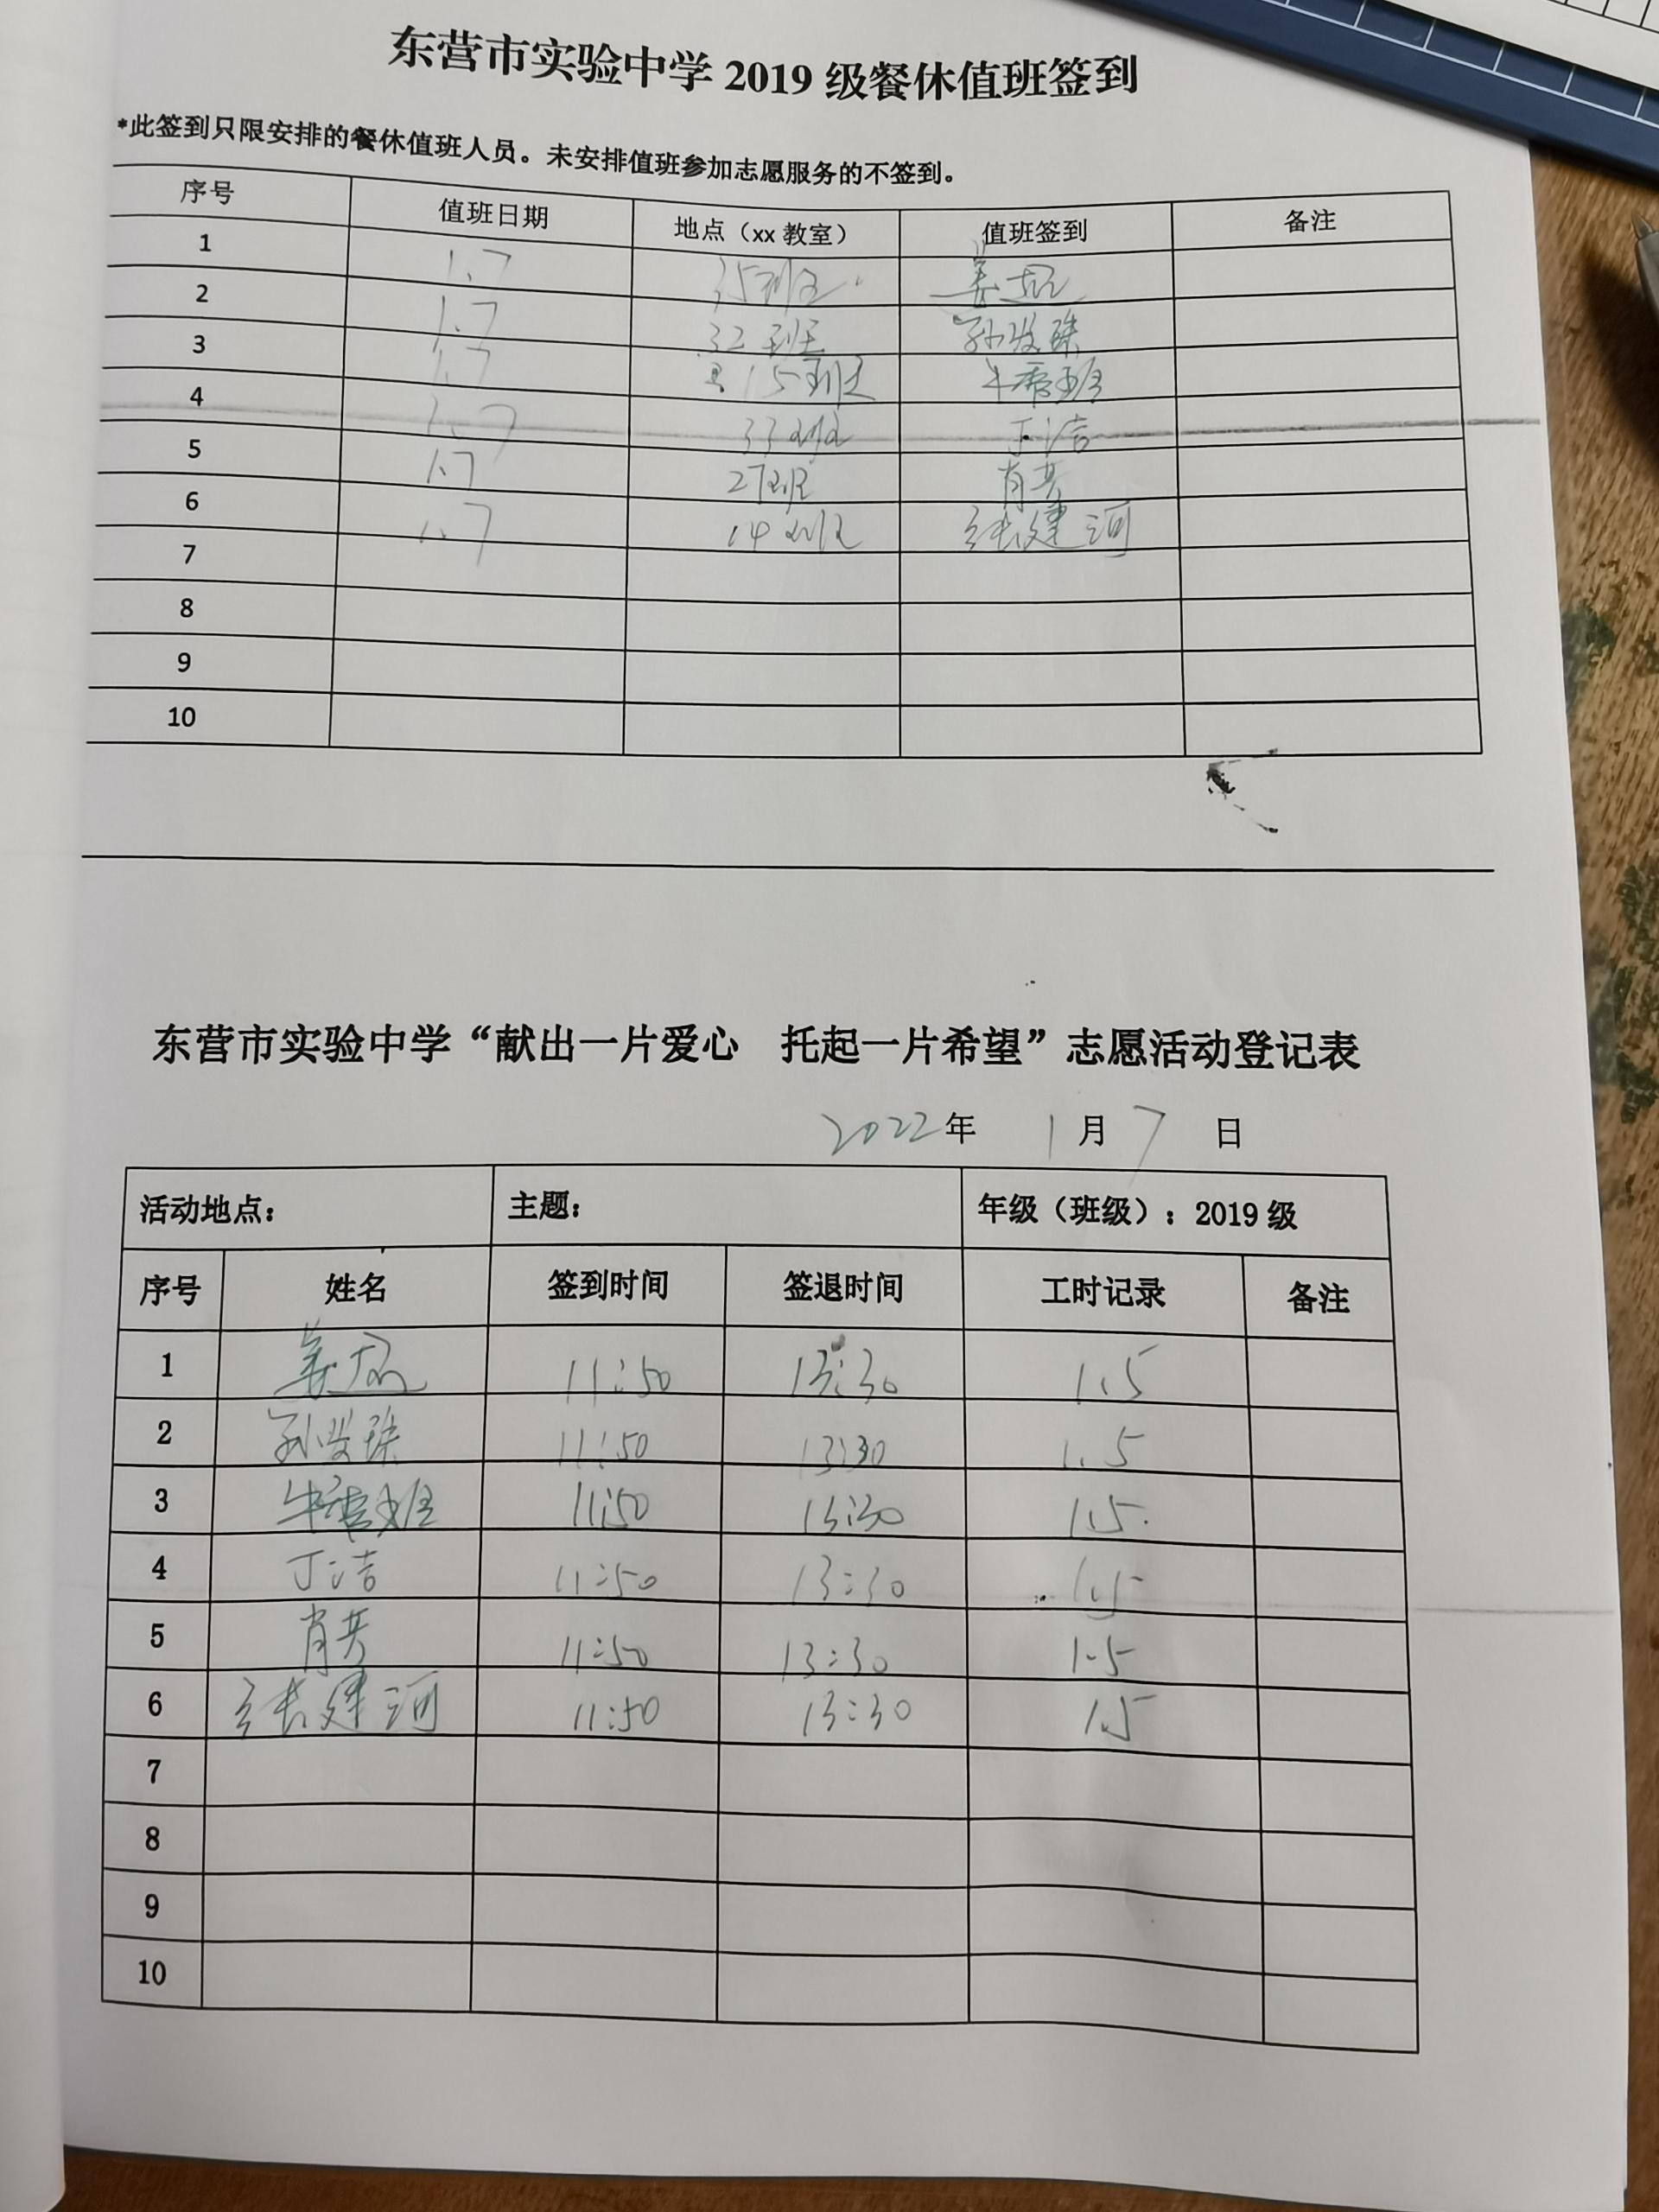 东营市实验中学 2019 级餐休值班签到
*此签到只限安排的餐休值班人员。未安排值班参加志愿服务的不签到。
序号 值班日期 地点（xx 教室） 值班签到 备注
1 1.7 35班
2 1.7 32班
3 1.7 15班
4 1.7 33班 丁洁
5 1.7 27班
6 1.7 14班 张建河
7
8
9
10
东营市实验中学“献出一片爱心 托起一片希望”志愿活动登记表
2022年 1月7 日
活动地点： 主题： 年级（班级）：2019 级
序号 姓名 签到时间 签退时间 工时记录 备注
1 11:50 13:30 1.5
2 11:50 13:30 1.5
3 11:50 13:30 1.5
4 丁洁 11:50 13:30 1.5
5 11:50 13:30 1.5
6 张建河 11:50 13:30 1.5
7
8
9
10